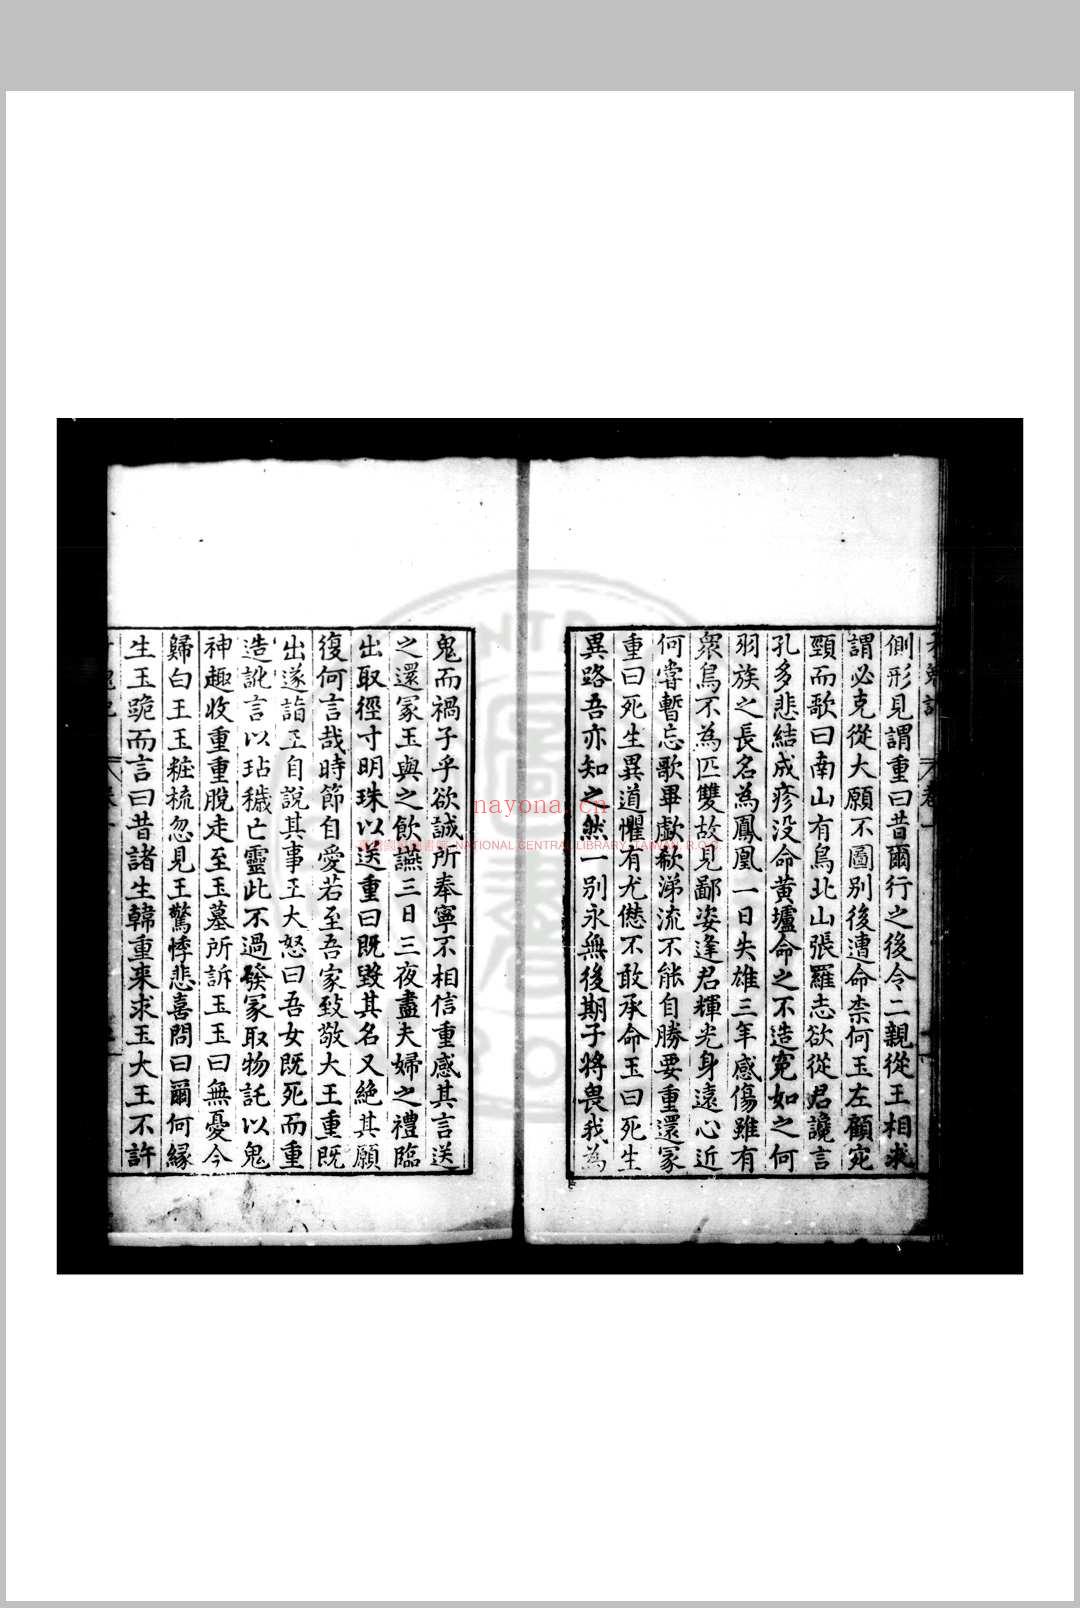 側形見謂重曰昔爾行之後令二親從王相求
謂必克從大願不圖別後遭命柰何玉左顧宛
頸而歌曰南山有鳥北山張羅志欲從君讒言
孔多悲結成疹没命黄壚命之不造冤如之何
羽族之長名為鳳凰一日失雄三年感傷雖有
衆鳥不為匹雙故見鄙姿逢君輝光身遠心近
何嘗暫忘歌畢歔欷涕流不能自勝要重還冢
重曰死生異道懼有尤㒽不敢承命玉曰死生
異路吾亦知之然一別永無後期子將畏我為
鬼而禍子乎欲誠所奉寧不相信重感其言送
之還冢玉與之飲讌三日三夜盡夫婦之禮臨
出取徑寸明珠以送重曰既毀其名又絶其願
復何言哉時節自愛若至吾家致敬大王重既
出遂詣王自說其事王大怒曰吾女既死而重
造訛言以玷穢亡靈此不過發冢取物託以鬼
神趣收重重脫走至玉墓所訴玉玉曰無憂今
歸白王玉粧梳忽見王驚悸悲喜問曰爾何緣
生玉跪而言曰昔諸生韓重来求玉大王不許
nayona.cn
NATIONAL CENTRAL LIBRARY, TAIWAN, R.O.C.